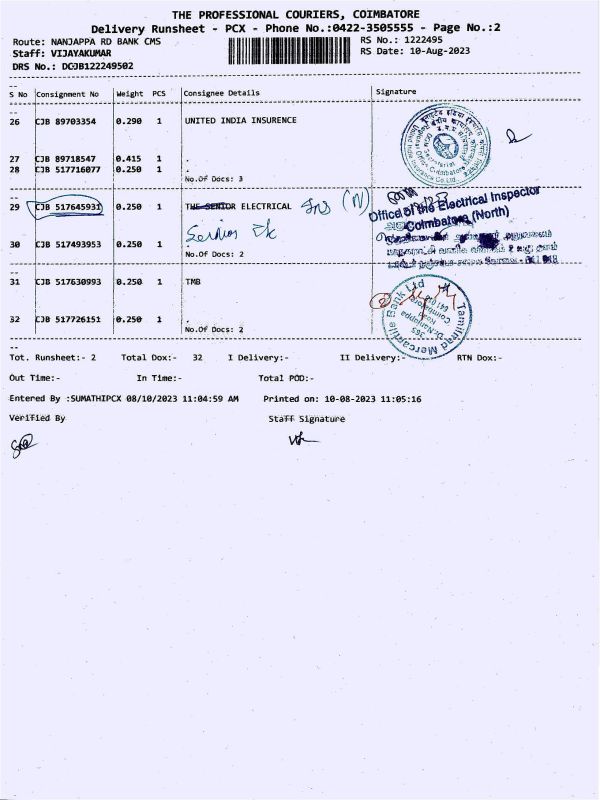 THE PROFESSIONAL COURIERS, COIMBATORE
Delivery Runsheet - PCX - Phone No.:0422-3505555 - Page No.:2
Route: NANJAPPA RD BANK CMS
RS No.: 1222495
Staff: VIJAYAKUMAR
RS Date: 10-Aug-2023
DRS No.: DCJB122249502
S No Consignment No Weight PCS Consignee Details Signature
26 CJB 89703354 0.290 1 UNITED INDIA INSURENCE
27 CJB 89718547 0.415 1 .
28 CJB 517716077 0.250 1 .
No.Of Docs: 3
29 CJB 517645931 0.250 1 THE SENIOR ELECTRICAL Ins (N)
Office of the Electrical Inspector
Coimbatore (North)
30 CJB 517493953 0.250 1
No.Of Docs: 2
641 018
31 CJB 517630993 0.250 1 TMB
Tamilnad Mercantile Bank Ltd
365
Dr.Nanjappa
Road
Coimbatore
641 018
32 CJB 517726151 0.250 1 .
No.Of Docs: 2
Tot. Runsheet:- 2 Total Dox:- 32 I Delivery:- II Delivery:- RTN Dox:-
Out Time:- In Time:- Total POD:-
Entered By :SUMATHIPCX 08/10/2023 11:04:59 AM Printed on: 10-08-2023 11:05:16
Verified By Staff Signature